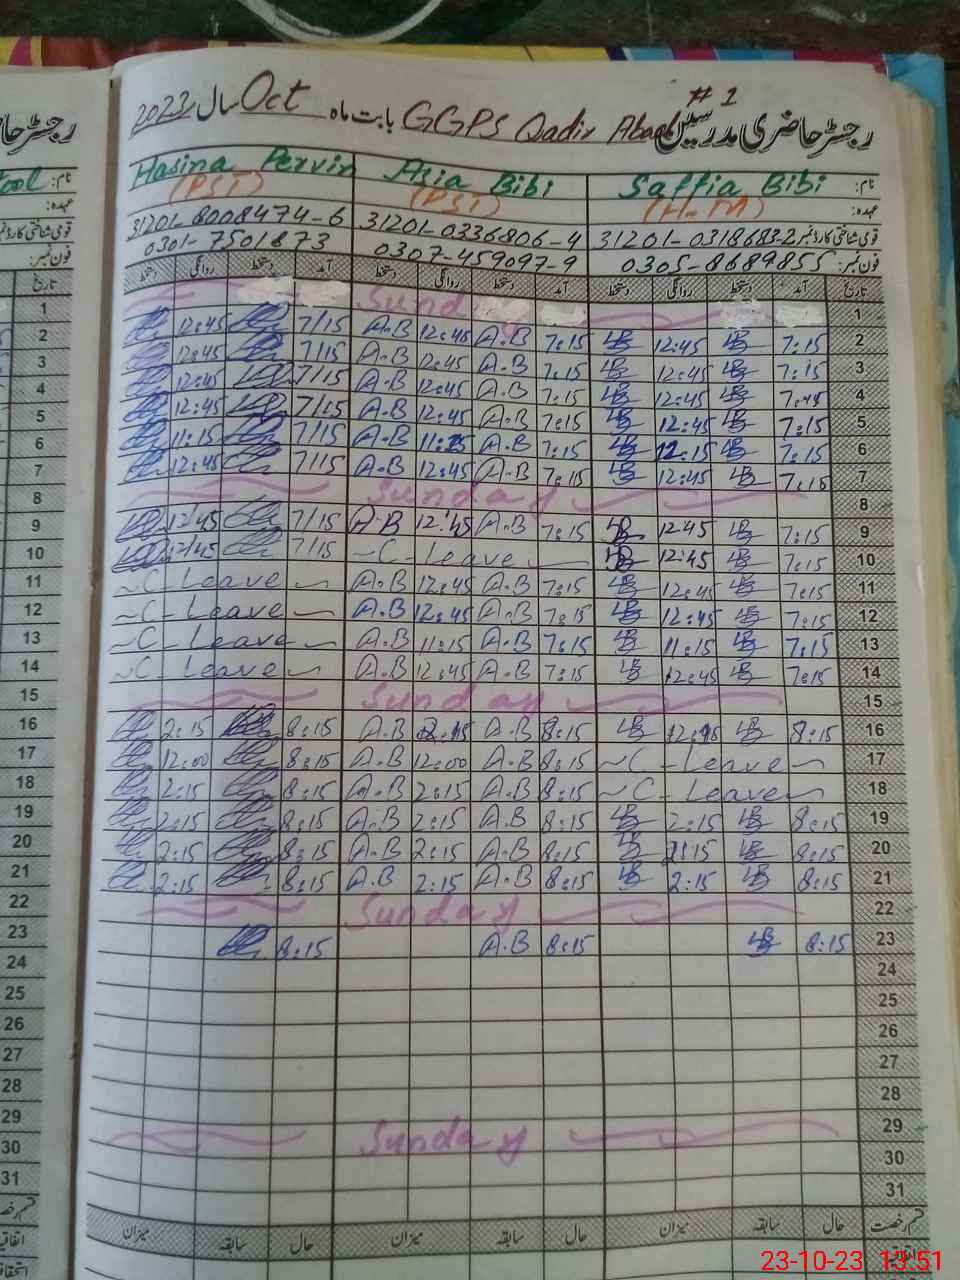 رجسٹر حاضری مدرسین # 1 GGPS Qadir Abad بابت ماہ Oct سال 2023
نام: Saffia Bibi Asia Bibi Hasina Pervin
عہدہ: (PST) (PST)
قومی شناختی کارڈ نمبر 31201-0318683-2 31201-0336806-4 31201-8008474-6
فون نمبر: 0305-8689855 0307-459097-9 0301-7501873
تاریخ آمد دستخط روانگی دستخط آمد دستخط روانگی دستخط آمد دستخط روانگی دستخط
1 Sunday
12:45 7/15 A.B 12:45 A.B 7:15 12:45 7:15 2
12:45 7/15 A.B 12:45 A.B 7:15 12:45 7:15 3
12:45 7/15 A.B 12:45 A.B 7:15 12:45 4
12:45 7/15 A.B 12:45 A.B 7:15 12:45 7:15 5
11:15 7/15 A.B A.B 7:15 7:15 6
12:45 7/15 A.B 12:45 A.B 7:15 12:45 7:15 7
Sunday 8
12/45 7/15 A.B 12:45 A.B 7:15 12:45 7:15 9
12/45 7/15 ~C-Leave 12:45 7:15 10
~C-Leave~ A.B 12:45 A.B 7:15 12:45 7:15 11
~C-Leave~ A.B 12:45 A.B 7:15 12:45 7:15 12
~C-Leave~ A.B 11:15 A.B 7:15 11:15 7:15 13
~C-Leave~ A.B 12:45 A.B 7:15 12:45 7:15 14
Sunday 15
2:15 8:15 A.B A.B 8:15 8:15 16
12:00 8:15 A.B 12:00 A.B 8:15 ~C-Leave~ 17
2:15 8:15 A.B 2:15 A.B 8:15 ~C-Leave~ 18
2:15 8:15 A.B 2:15 A.B 8:15 2:15 8:15 19
2:15 8:15 A.B 2:15 A.B 8:15 2:15 8:15 20
2:15 8:15 A.B 2:15 A.B 8:15 2:15 8:15 21
Sunday 22
8:15 A.B 8:15 8:15 23
24
25
26
27
28
Sunday 29
30
31
قسم رخصت حال سابقہ میزان حال سابقہ میزان حال سابقہ میزان
اتفاقیہ
23-10-23 13:51